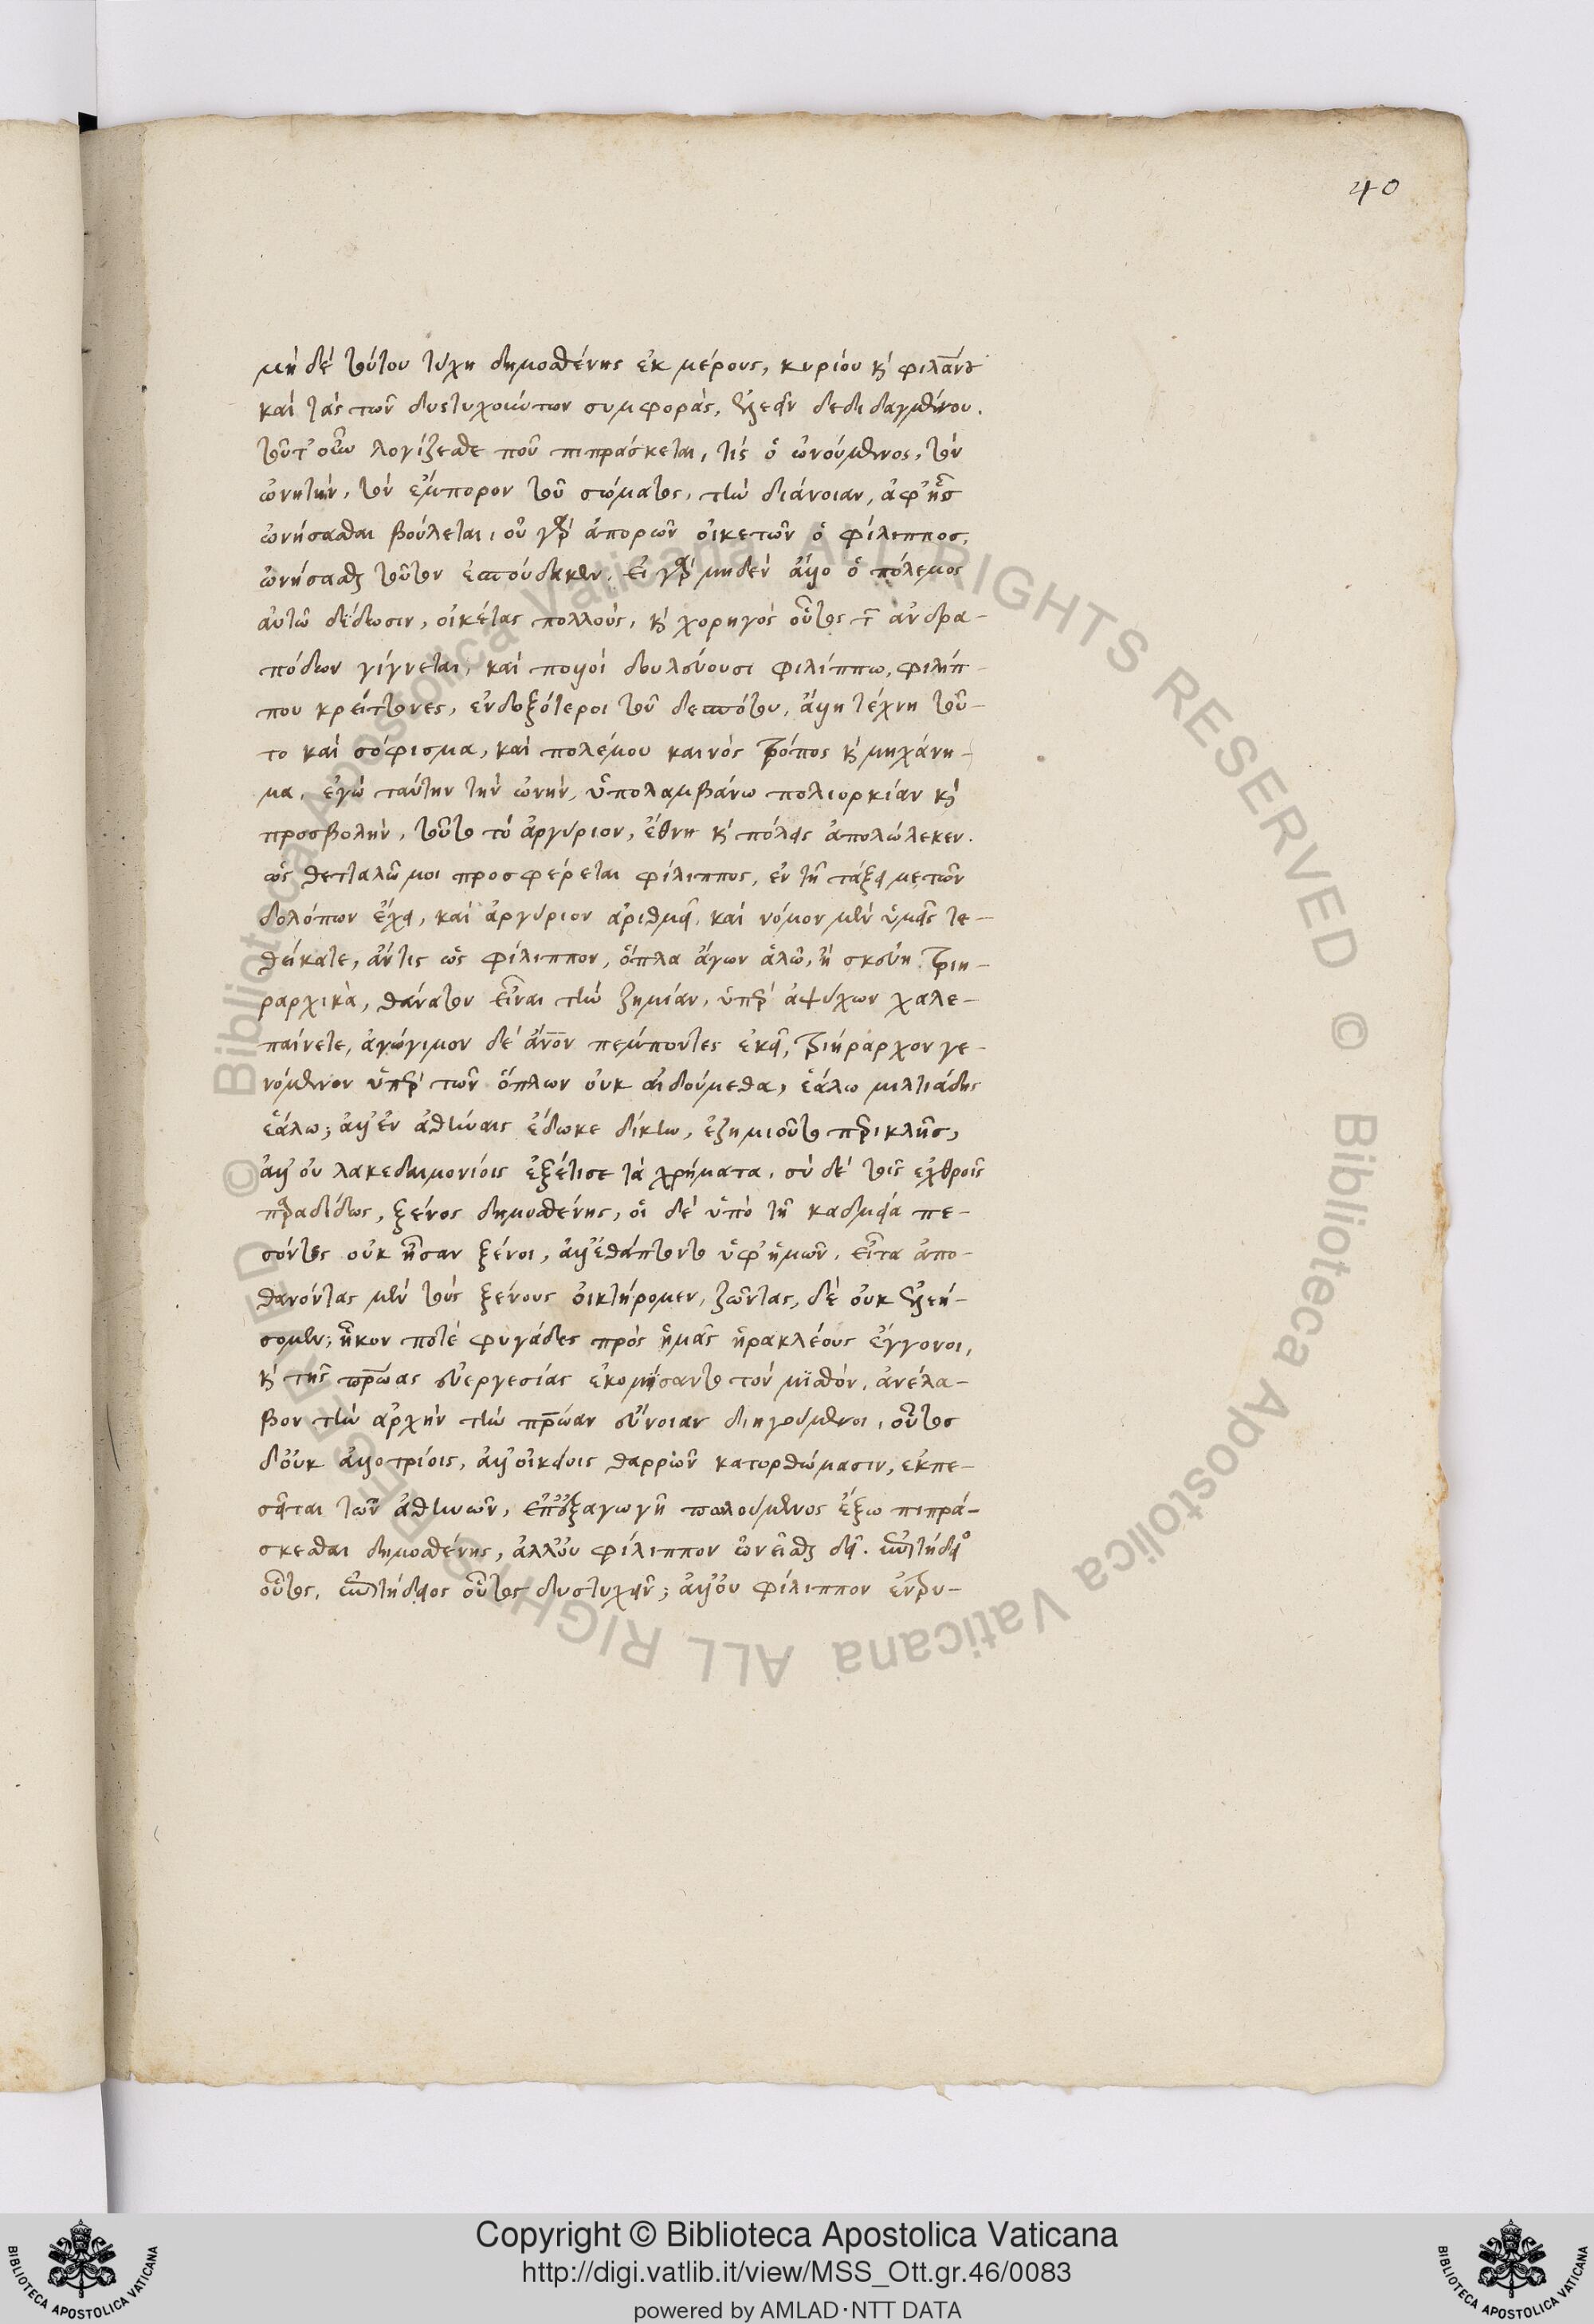 40
μὴ δὲ τούτου τύχη δημοσθένης ἐκ μέρους, κυρίου κ φιλαν̅ου
καὶ τὰς τῶν δυστυχούντων συμφορὰς, ἐλεεῖν δεδιδαγμένου.
τοῦτ οὖν λογίζεσθε ποῦ πιπράσκεται, τίς ὁ ὠνούμενος, τὸν
ὠνητὴν, τὸν ἔμπορον τοῦ σώματος, τὴν διάνοιαν, ἀφ ἧς
ὠνήσασθαι βούλεται, οὐ γὰρ ἀπορῶν οἰκετῶν ὁ φίλιππος,
ὠνήσασθαι τοῦτον ἐσπούδακεν. εἰ γὰρ μηδὲν ἄλλο ὁ πόλεμος
αὐτῶ δέδωσιν, οἰκέτας πολλοὺς, κ χορηγὸς οὗτος τ ἀνδρα-
πόδων γίγνεται, καὶ πολλοὶ δουλεύουσι φιλίππω, φιλίπ-
που κρείττονες, ἐνδοξότεροι τοῦ δεσπότου, ἄλλη τέχνη τοῦ-
το καὶ σόφισμα, καὶ πολέμου καινὸς τρόπος κ μηχάνη-
μα, ἐγὼ ταύτην τὴν ὠνὴν, ὑπολαμβάνω πολιορκίαν κ
προσβολὴν, τοῦτο τὸ ἀργύριον, ἔθνη κ πόλεις ἀπολώλεκεν.
ὡς θετταλῶ μοι προσφέρεται φίλιππος, ἐν τῆ τάξει με τῶν
δολόπων ἔχει, καὶ ἀργύριον ἀριθμεῖ, καὶ νόμον μὲν ὑμεῖς τε-
θείκατε, ἄν τις ὡς φίλιππον, ὅπλα ἄγων ἁλῶ, ἢ σκεύη τριη-
ραρχικὰ, θάνατον εἶναι τὴν ζημίαν, ὑπὲρ ἀψύχων χαλε-
παίνετε, ἀγώγιμον δὲ ἄν̅ον πέμποντες ἐκεῖ, τριήραρχον γε-
νόμενον ὑπὲρ τῶν ὅπλων οὐκ αἰδούμεθα, ἑάλω μιλτιάδης
ἑάλω; ἀλλ ἐν ἀθήναις ἔδωκε δίκην, ἐζημιοῦτο περικλῆς,
ἀλλ οὐ λακεδαιμονίοις ἐξέτισε τὰ χρήματα. σὺ δὲ τοῖς ἐχθροῖς
παραδίδως, ξένος δημοσθένης, οἱ δὲ ὑπὸ τῆ καδμεία πε-
σόντες οὐκ ἦσαν ξένοι, ἀλλ ἐθάπτοντο ὑφ ἡμῶν. εἶτα ἀπο-
θανόντας μὲν τοὺς ξένους οἰκτήρομεν, ζῶντας, δὲ οὐκ ἐλεή-
σομεν; ἧκον ποτὲ φυγάδες πρὸς ἡμᾶς ἡρακλέους ἔγγονοι,
κ τῆς πρ̅ώας εὐεργεσίας ἐκομίσαντο τὸν μισθὸν, ἀνέλα-
βον τὴν ἀρχὴν τὴν πρ̅ώαν εὔνοιαν διηγούμενοι, οὗτος
δ οὐκ ἀλλοτρίοις, ἀλλ οἰκείοις θαρρῶν κατορθώμασιν, ἐκπε-
σεῖται τῶν ἀθηνῶν, ἐπ ἐξαγωγῆ πωλούμενος ἔξω πιπρά-
σκεσθαι δημοσθένης, ἀλλ οὐ φίλιππον ὠνεῖσθαι δεῖ. ἐπιτήδειο
οὗτος, ἐπιτήδειος οὗτος δυστυχεῖν; ἀλλ οὐ φίλιππον ἐντρυ-
Copyright © Biblioteca Apostolica Vaticana
http://digi.vatlib.it/view/MSS_Ott.gr.46/0083
powered by AMLAD·NTT DATA
BIBLIOTECA APOSTOLICA VATICANA
BIBLIOTECA APOSTOLICA VATICANA
© Biblioteca Apostolica Vaticana ALL RIGHTS RESERVED © Biblioteca Apostolica Vaticana ALL RIGHTS RESERVED